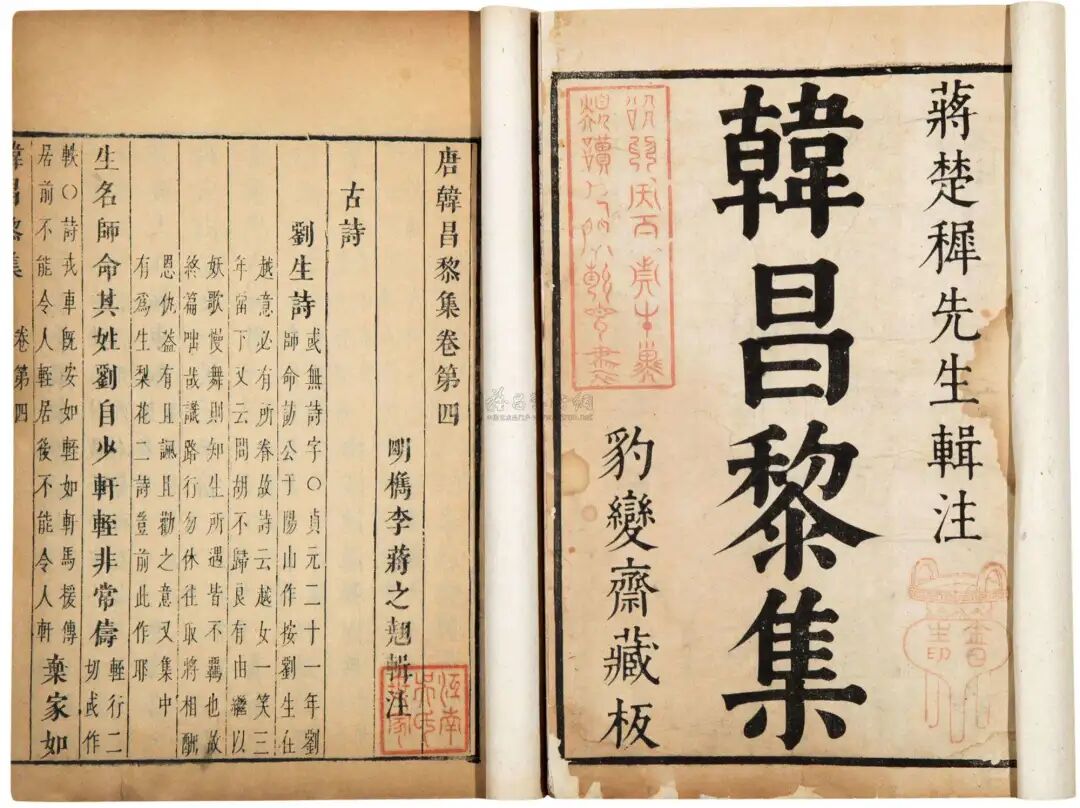 蔣楚稺先生輯注
韓昌黎集
豹變齋藏板
唐韓昌黎集卷第四
明檇李蔣之翹輯注
古詩
劉生詩 或無詩字〇貞元二十一年劉
師命訪公于陽山作按劉生在
越意必有所眷故詩云越女一笑三
年留下又云問胡不歸良有由繼以
妖歌慢舞則知生所遇皆不羈也故
終篇咄哉識路行勿休往取將相酬
恩仇蓋有且諷且勸之意又集中
有爲生梨花二詩豈前此作耶
生名師命其姓劉自少軒輊非常儔 輊行二
切或作
軼〇詩戎車既安如輊如軒馬援傳
居前不能令人輊居後不能令人軒 棄家如
韓昌黎集 卷第四
江南